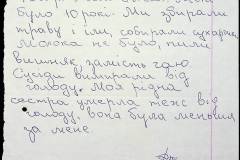 було 10 років. Ми збирали
траву і їли, собирали сухарі
Молока не було, пили
вишняк замість чаю
Сусіди вимирали від
голоду. Моя рідна
сестра умерла теж від
голоду, вона була меньша
за мене.